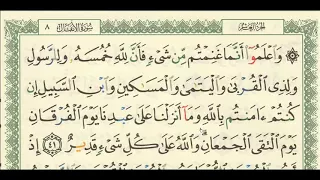 الجزء العاشر سورة الأنفال ٨
۞ وَاعْلَمُوٓا أَنَّمَا غَنِمْتُم مِّن شَيْءٍ فَأَنَّ لِلَّهِ خُمُسَهُۥ وَلِلرَّسُولِ
وَلِذِى الْقُرْبَىٰ وَالْيَتَٰمَىٰ وَالْمَسَٰكِينِ وَابْنِ السَّبِيلِ إِن
كُنتُمْ ءَامَنتُم بِاللَّهِ وَمَآ أَنزَلْنَا عَلَىٰ عَبْدِنَا يَوْمَ الْفُرْقَانِ
يَوْمَ الْتَقَى الْجَمْعَانِ ۗ وَاللَّهُ عَلَىٰ كُلِّ شَيْءٍ قَدِيرٌ ٤١ إِذْ